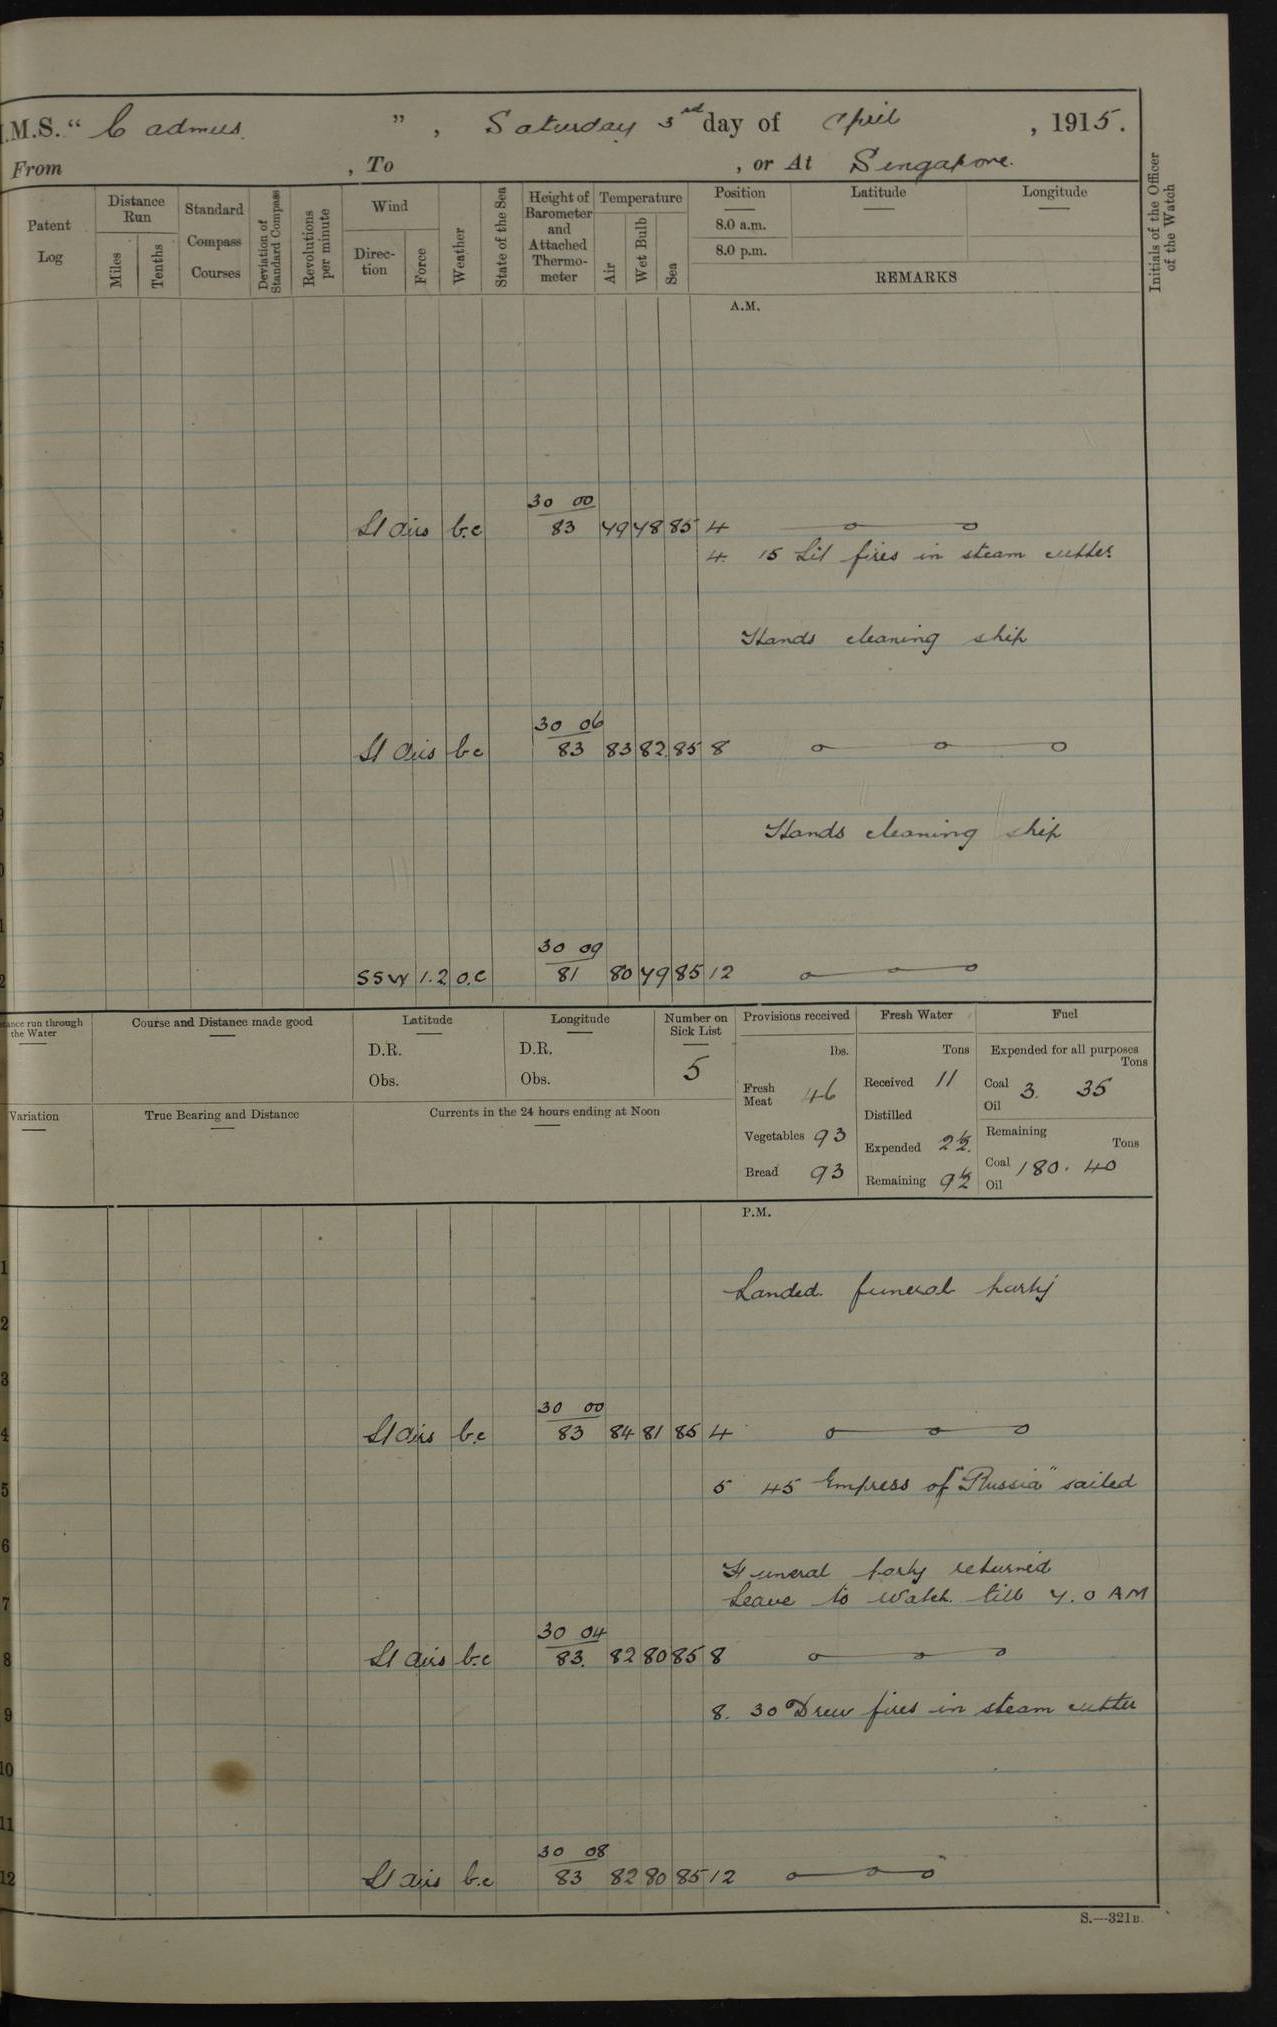 .M.S. " Cadmus ", Saturday 3rd day of April, 1915.
From , To , or At Singapore.
Patent Log
Distance Run
Miles
Tenths
Standard Compass Courses
Deviation of Standard Compass
Revolutions per minute
Wind
Direc-tion
Force
Weather
State of the Sea
Height of Barometer and Attached Thermo-meter
Temperature
Air
Wet Bulb
Sea
Position
8.0 a.m.
8.0 p.m.
Latitude
Longitude
REMARKS
Initials of the Officer of the Watch
A.M.
30 00
Lt airs b.c 83 79 78 85 4
4. 15 Lit fires in steam cutter
Hands cleaning ship
30 06
Lt airs b.c 83 83 82 85 8
Hands cleaning ship
30 09
SSW 1.2 o.c 81 80 79 85 12
tance run through the Water
Course and Distance made good
Latitude
D.R.
Obs.
Longitude
D.R.
Obs.
Number on Sick List
5
Provisions received
lbs.
Fresh Meat 46
Vegetables 93
Bread 93
Fresh Water
Tons
Received 11
Distilled
Expended 2½
Remaining 9½
Fuel
Expended for all purposes
Tons
Coal 3. 35
Oil
Remaining
Tons
Coal 180. 40
Oil
Variation
True Bearing and Distance
Currents in the 24 hours ending at Noon
P.M.
1
Landed funeral party
2
3
30 00
4 Lt airs b.c 83 84 81 85 4
5 5 45 Empress of "Russia" sailed
6
Funeral party returned
7 Leave to Watch till 7.0 AM
30 04
8 Lt airs b.c 83. 82 80 85 8
9 8. 30 Drew fires in steam cutter
10
11
30 08
12 Lt airs b.c 83 82 80 85 12
S.—321B.